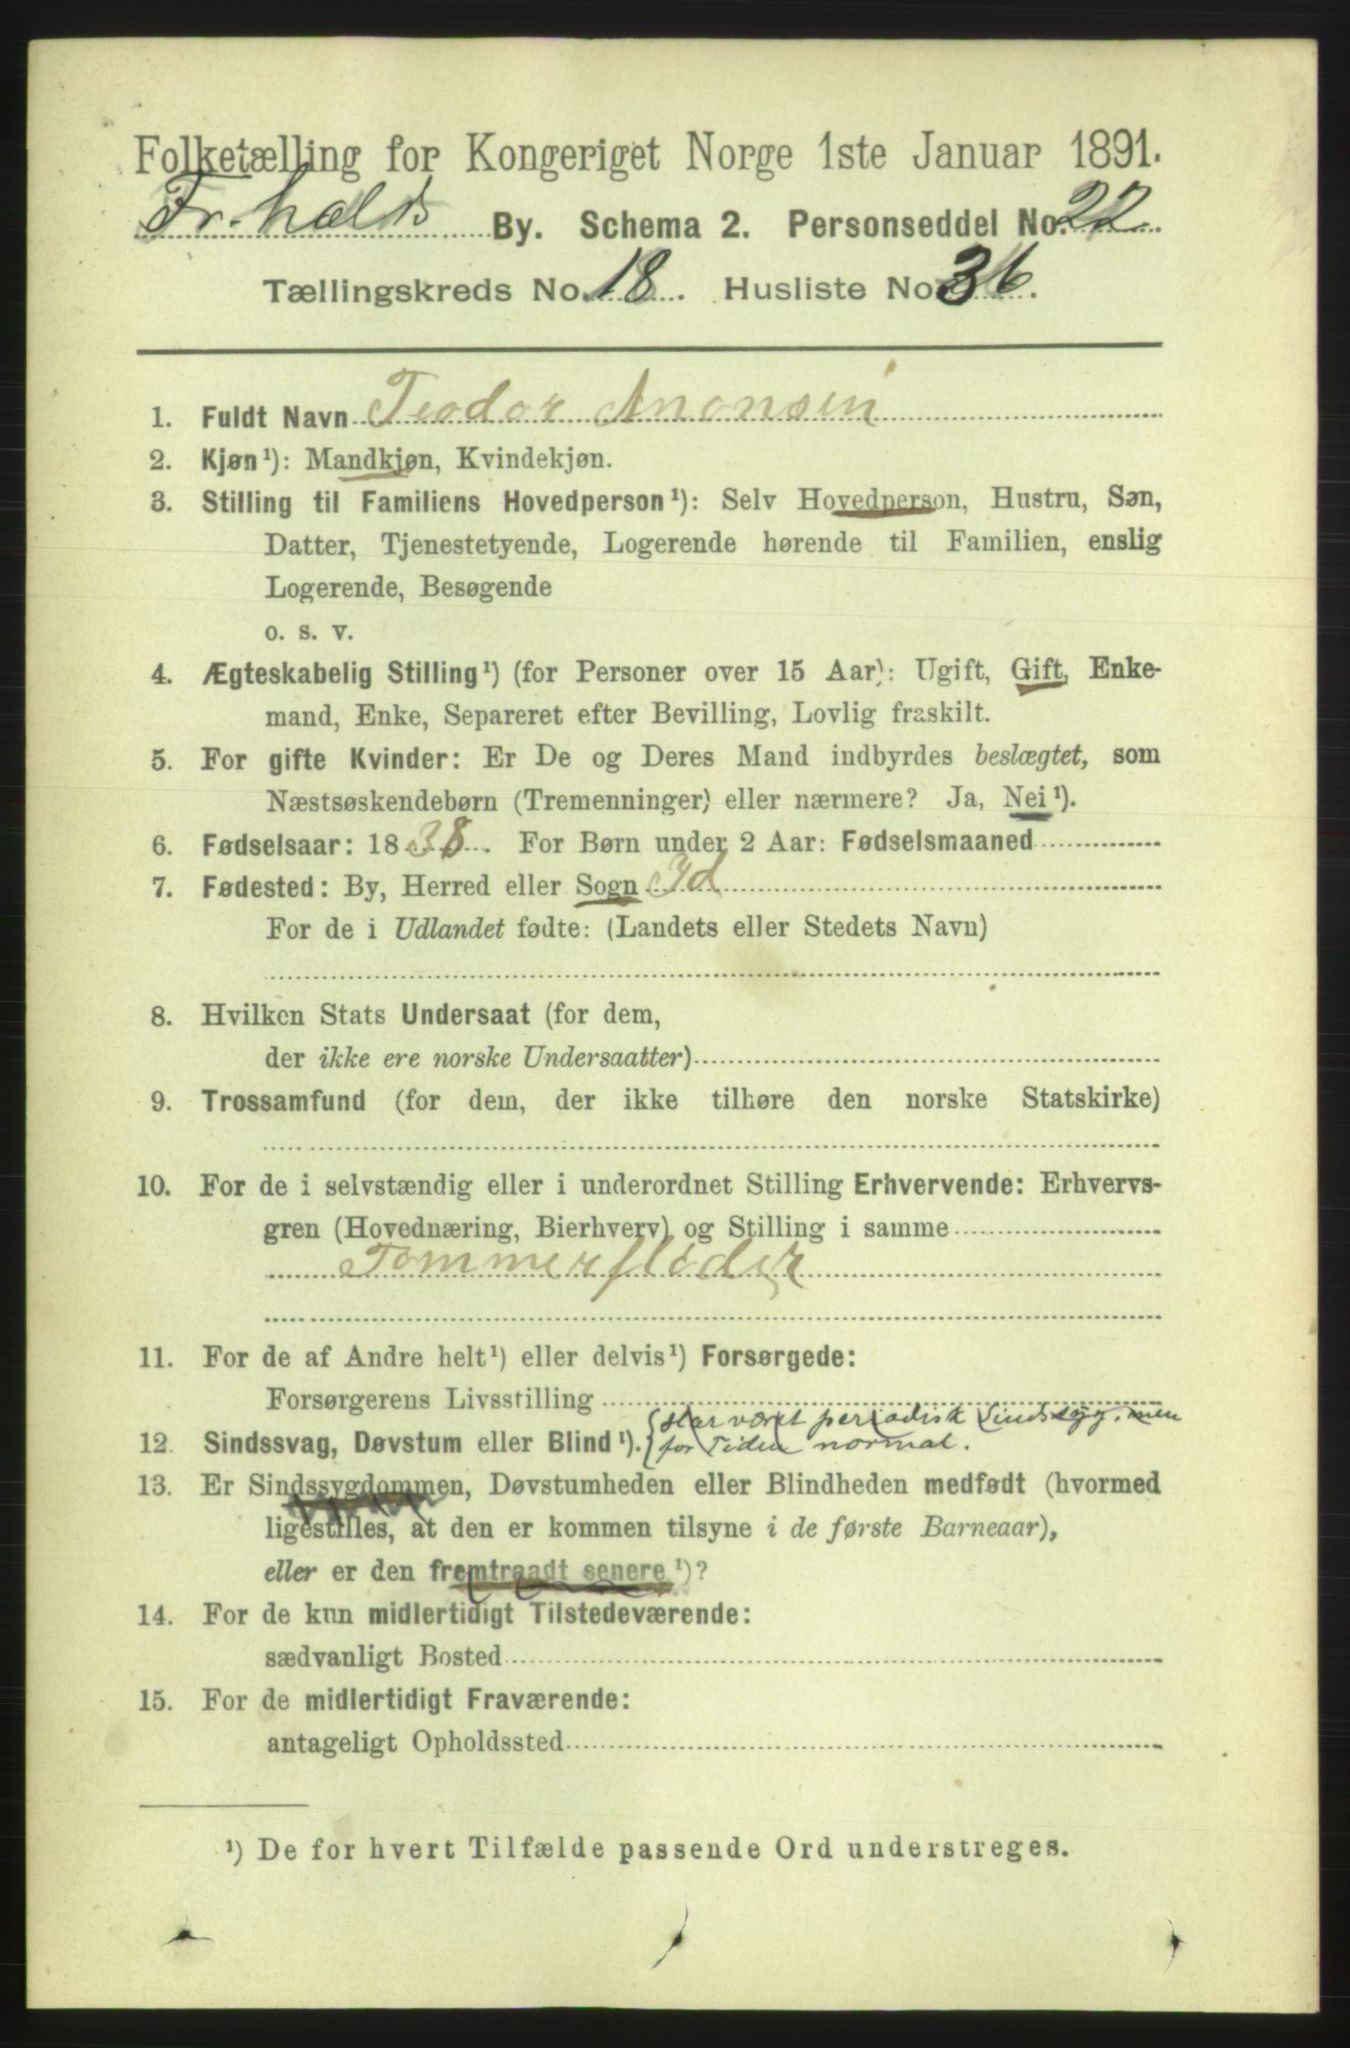 Folketælling for Kongeriget Norge 1ste Januar 1891.
Fr.halds By. Schema 2. Personseddel No. 22
Tællingskreds No. 18. Husliste No. 36.
1. Fuldt Navn Teodor Anonsen
2. Kjøn¹): Mandkjøn, Kvindekjøn.
3. Stilling til Familiens Hovedperson¹): Selv Hovedperson, Hustru, Søn,
Datter, Tjenestetyende, Logerende hørende til Familien, enslig
Logerende, Besøgende
o. s. v.
4. Ægteskabelig Stilling¹) (for Personer over 15 Aar): Ugift, Gift, Enke-
mand, Enke, Separeret efter Bevilling, Lovlig fraskilt.
5. For gifte Kvinder: Er De og Deres Mand indbyrdes beslægtet, som
Næstsøskendebørn (Tremenninger) eller nærmere? Ja, Nei¹).
6. Fødselsaar: 1838. For Børn under 2 Aar: Fødselsmaaned
7. Fødested: By, Herred eller Sogn Id
For de i Udlandet fødte: (Landets eller Stedets Navn)
8. Hvilken Stats Undersaat (for dem,
der ikke ere norske Undersaatter)
9. Trossamfund (for dem, der ikke tilhøre den norske Statskirke)
10. For de i selvstændig eller i underordnet Stilling Erhvervende: Erhvervs-
gren (Hovednæring, Bierhverv) og Stilling i samme
Tømmerfløder
11. For de af Andre helt¹) eller delvis¹) Forsørgede:
Forsørgerens Livsstilling
{Har været periodisk Sindssyg, men
12. Sindssvag, Døvstum eller Blind¹). for Tiden normal.
13. Er Sindssygdommen, Døvstumheden eller Blindheden medfødt (hvormed
ligestilles, at den er kommen tilsyne i de første Barneaar),
eller er den fremtraadt senere¹)?
14. For de kun midlertidigt Tilstedeværende:
sædvanligt Bosted
15. For de midlertidigt Fraværende:
antageligt Opholdssted
¹) De for hvert Tilfælde passende Ord understreges.